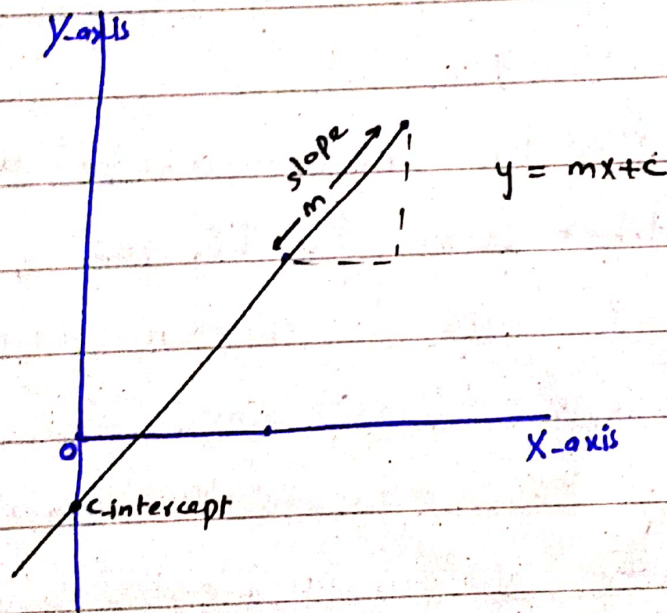 Y-axis
slope
m
y = mx+c
O
X-axis
c-intercept